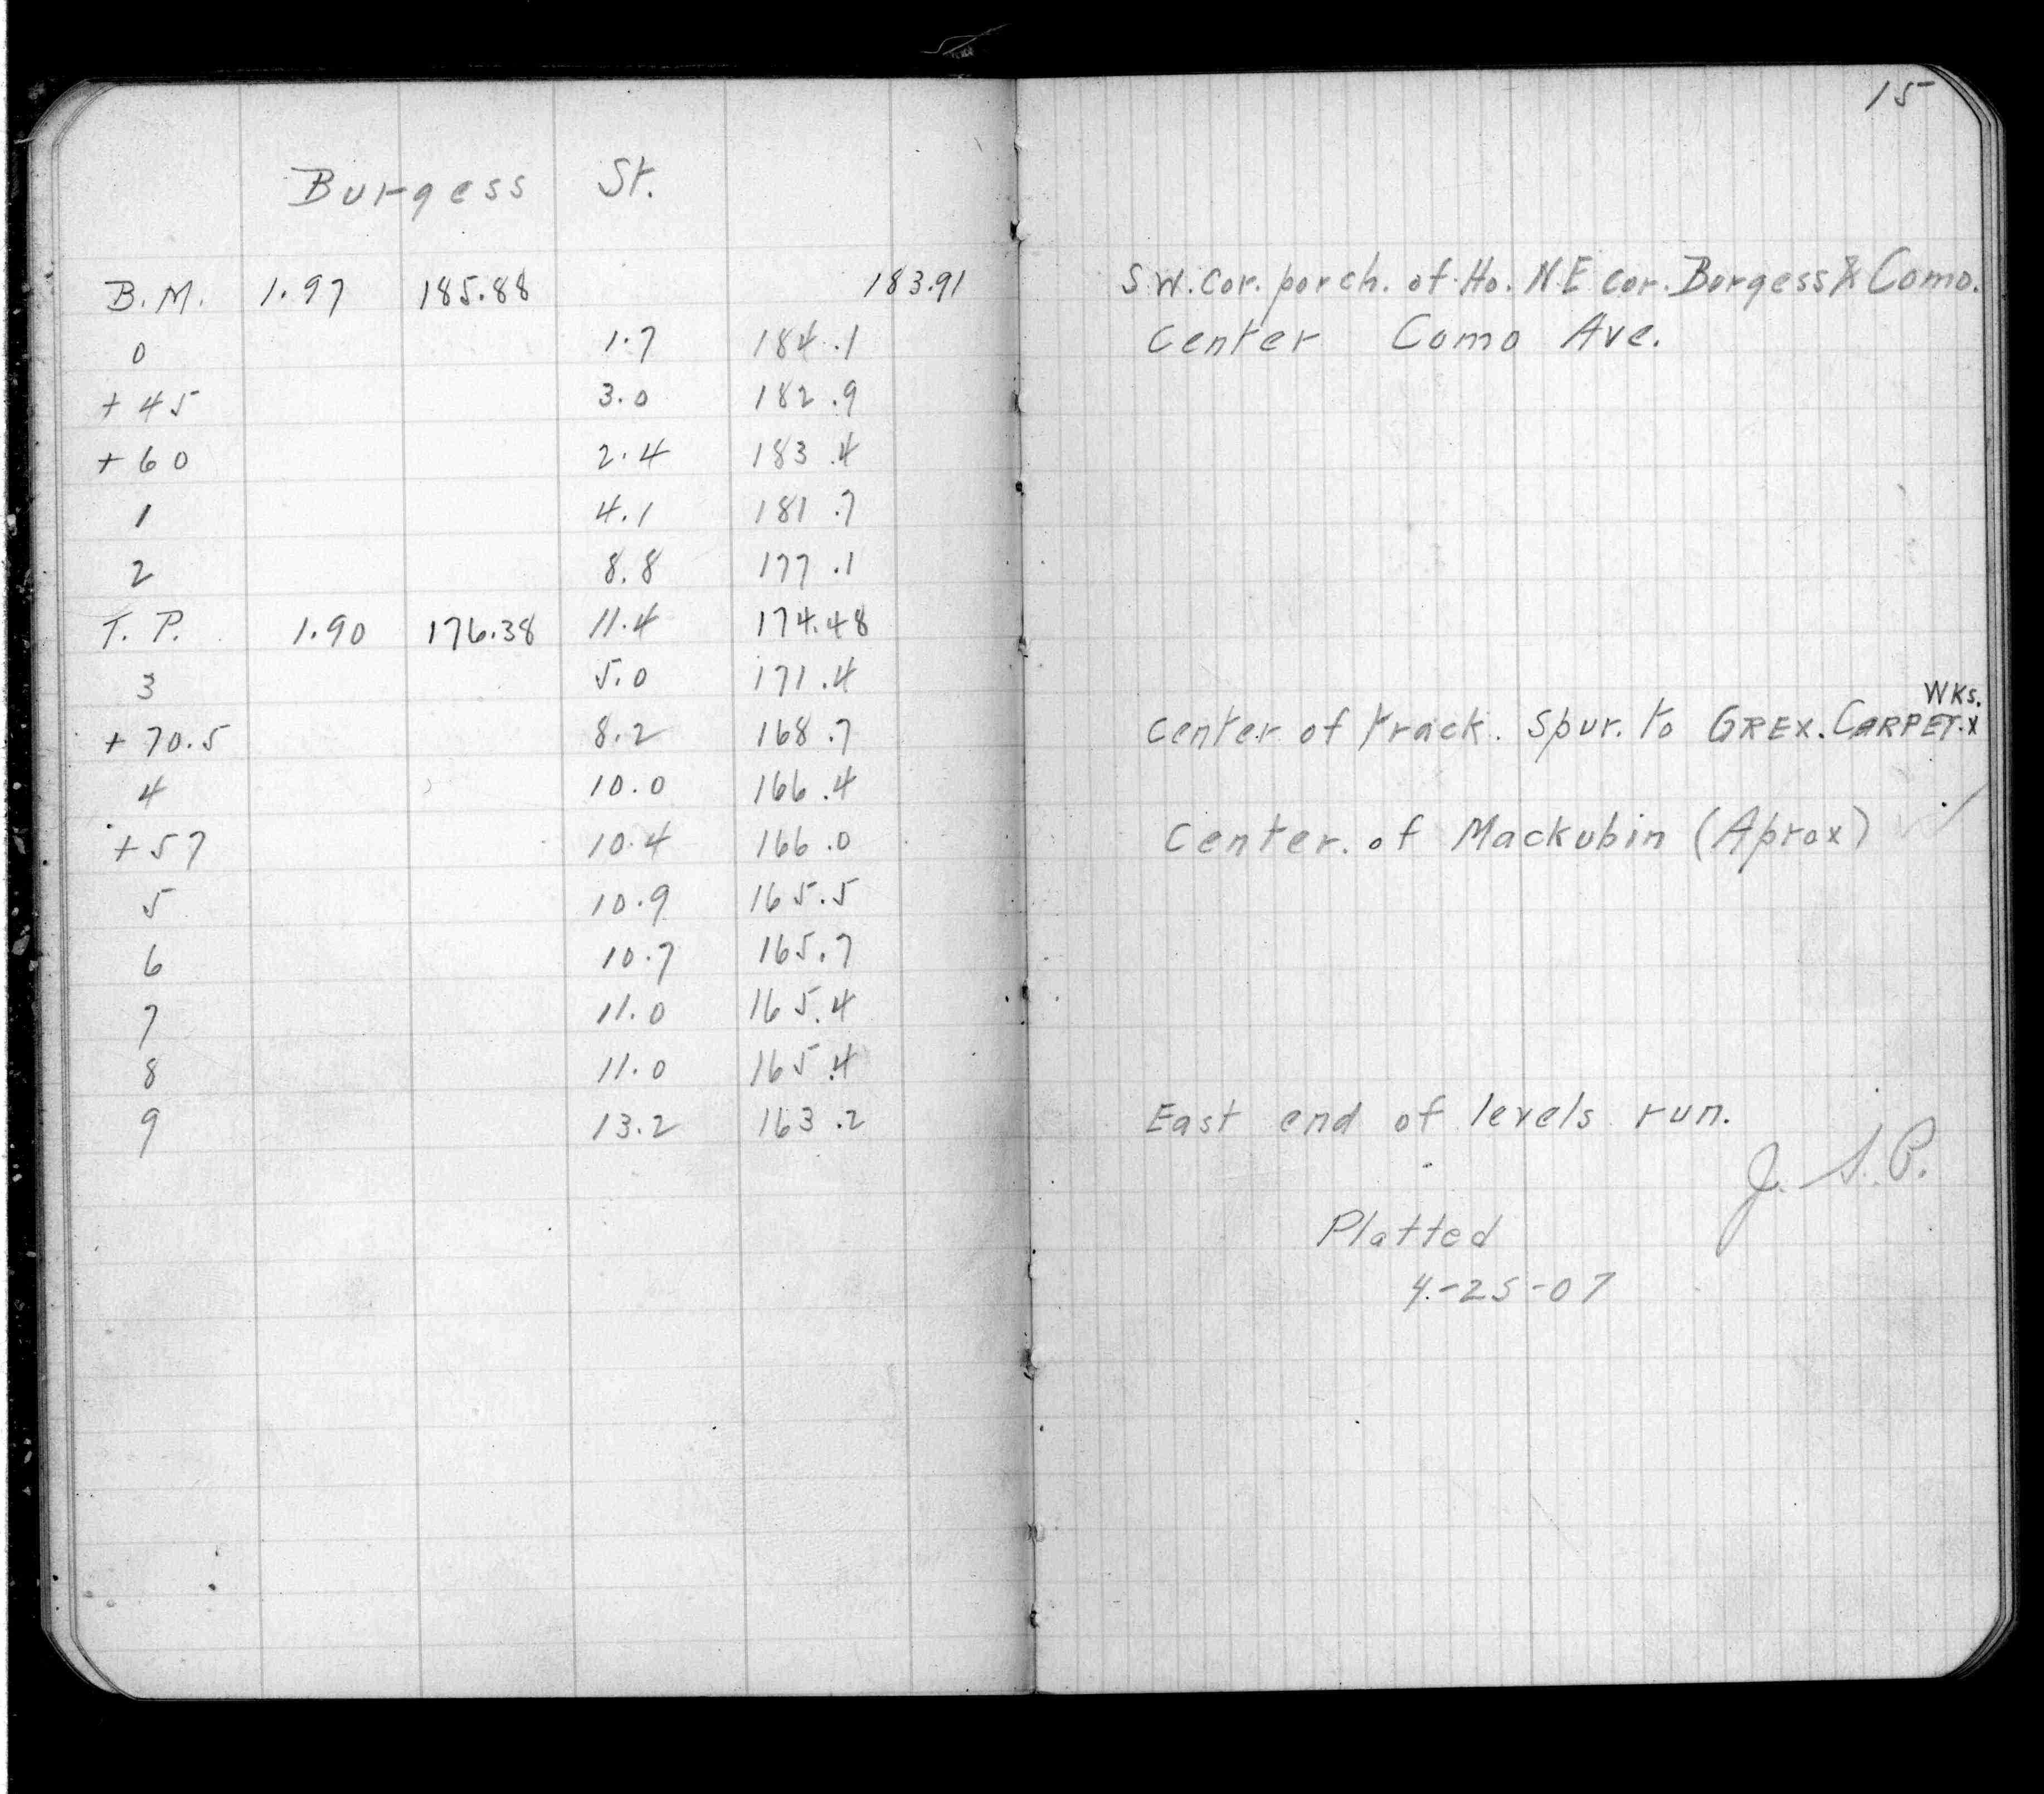 15
Burgess St.
B.M. 1.97 185.88 183.91 S.W. Cor. porch. of Ho. N E cor. Burgess & Como.
0 1.7 184.1 Center Como Ave.
+45 3.0 182.9
+60 2.4 183.4
1 4.1 181.7
2 8.8 177.1
T. P. 1.90 176.38 11.4 174.48
3 5.0 171.4
WKs.
+70.5 8.2 168.7 Center of track. Spur. to GREX. CARPET.x
4 10.0 166.4
+57 10.4 166.0 Center. of Mackubin (Aprox)
5 10.9 165.5
6 10.7 165.7
7 11.0 165.4
8 11.0 165.4
9 13.2 163.2 East end of levels run.
J. S. P.
Platted
4-25-07